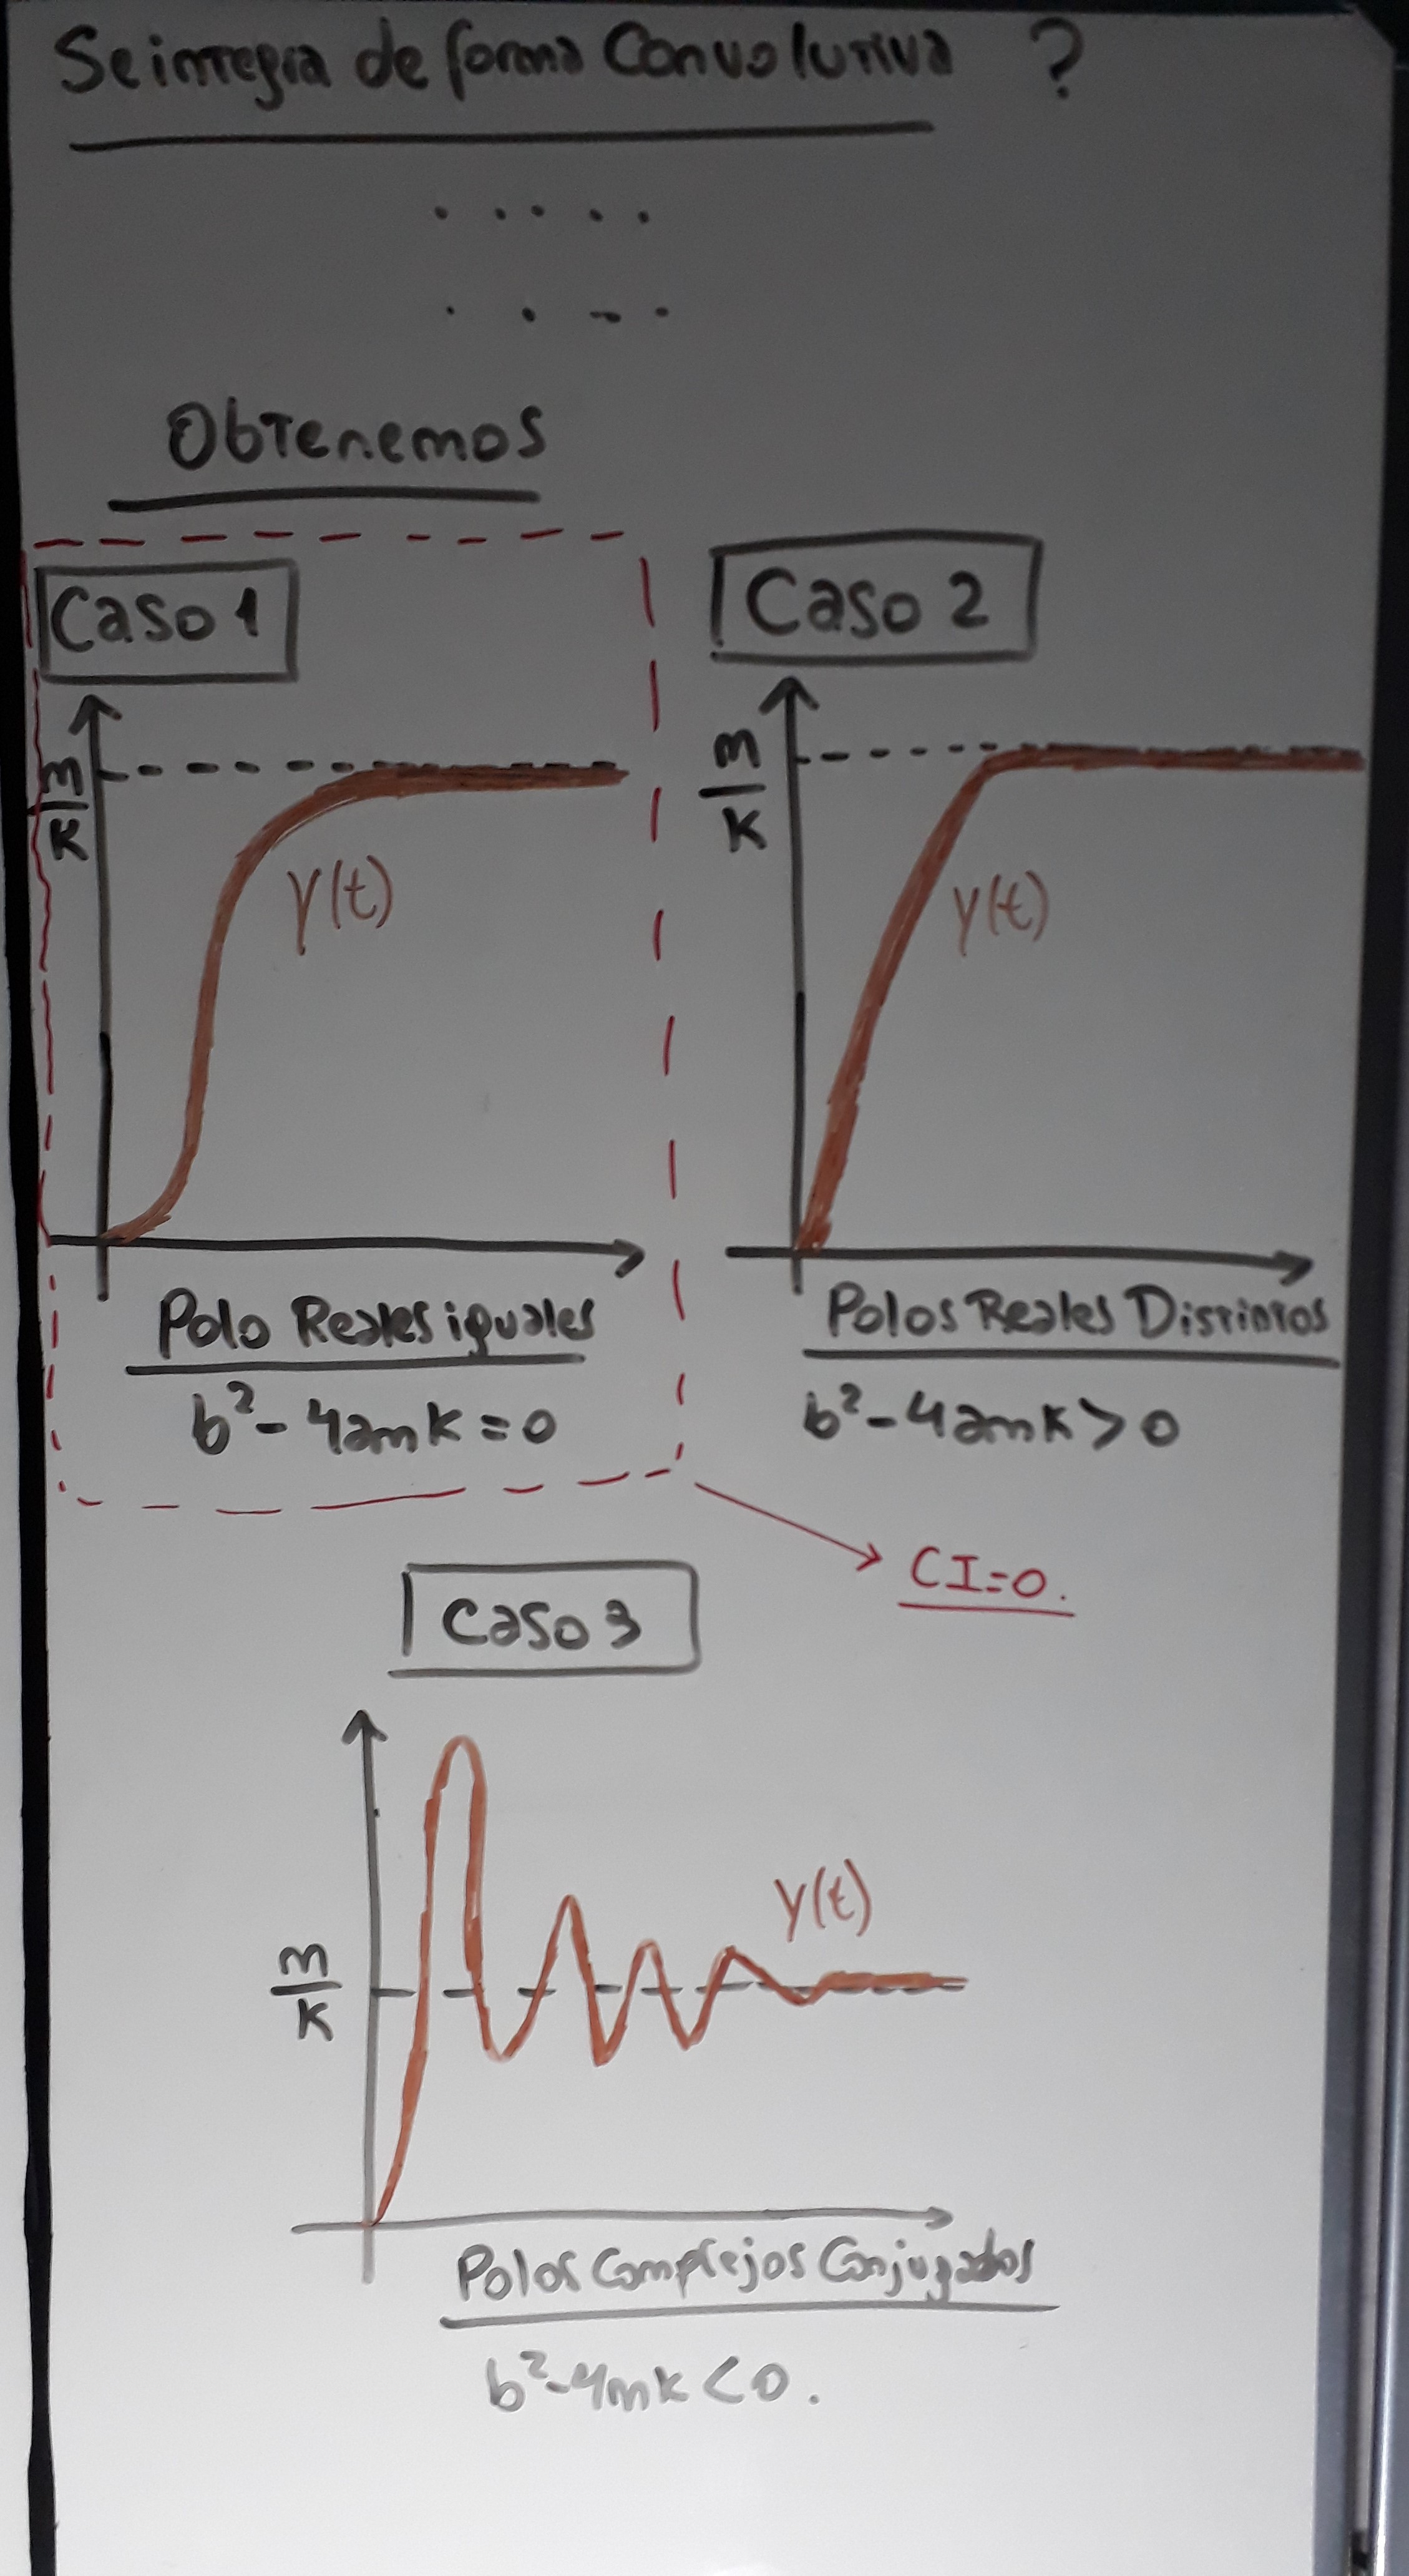 Se integra de forma Convolutiva ?
. . . . .
. . . .
Obtenemos
Caso 1
m/K
y(t)
Polo Reales iguales
b²-4amk=0
Caso 2
m/K
y(t)
Polos Reales Distintos
b²-4amk>0
CI=0.
Caso 3
m/K
y(t)
Polos Complejos Conjugados
b²-4mk<0.